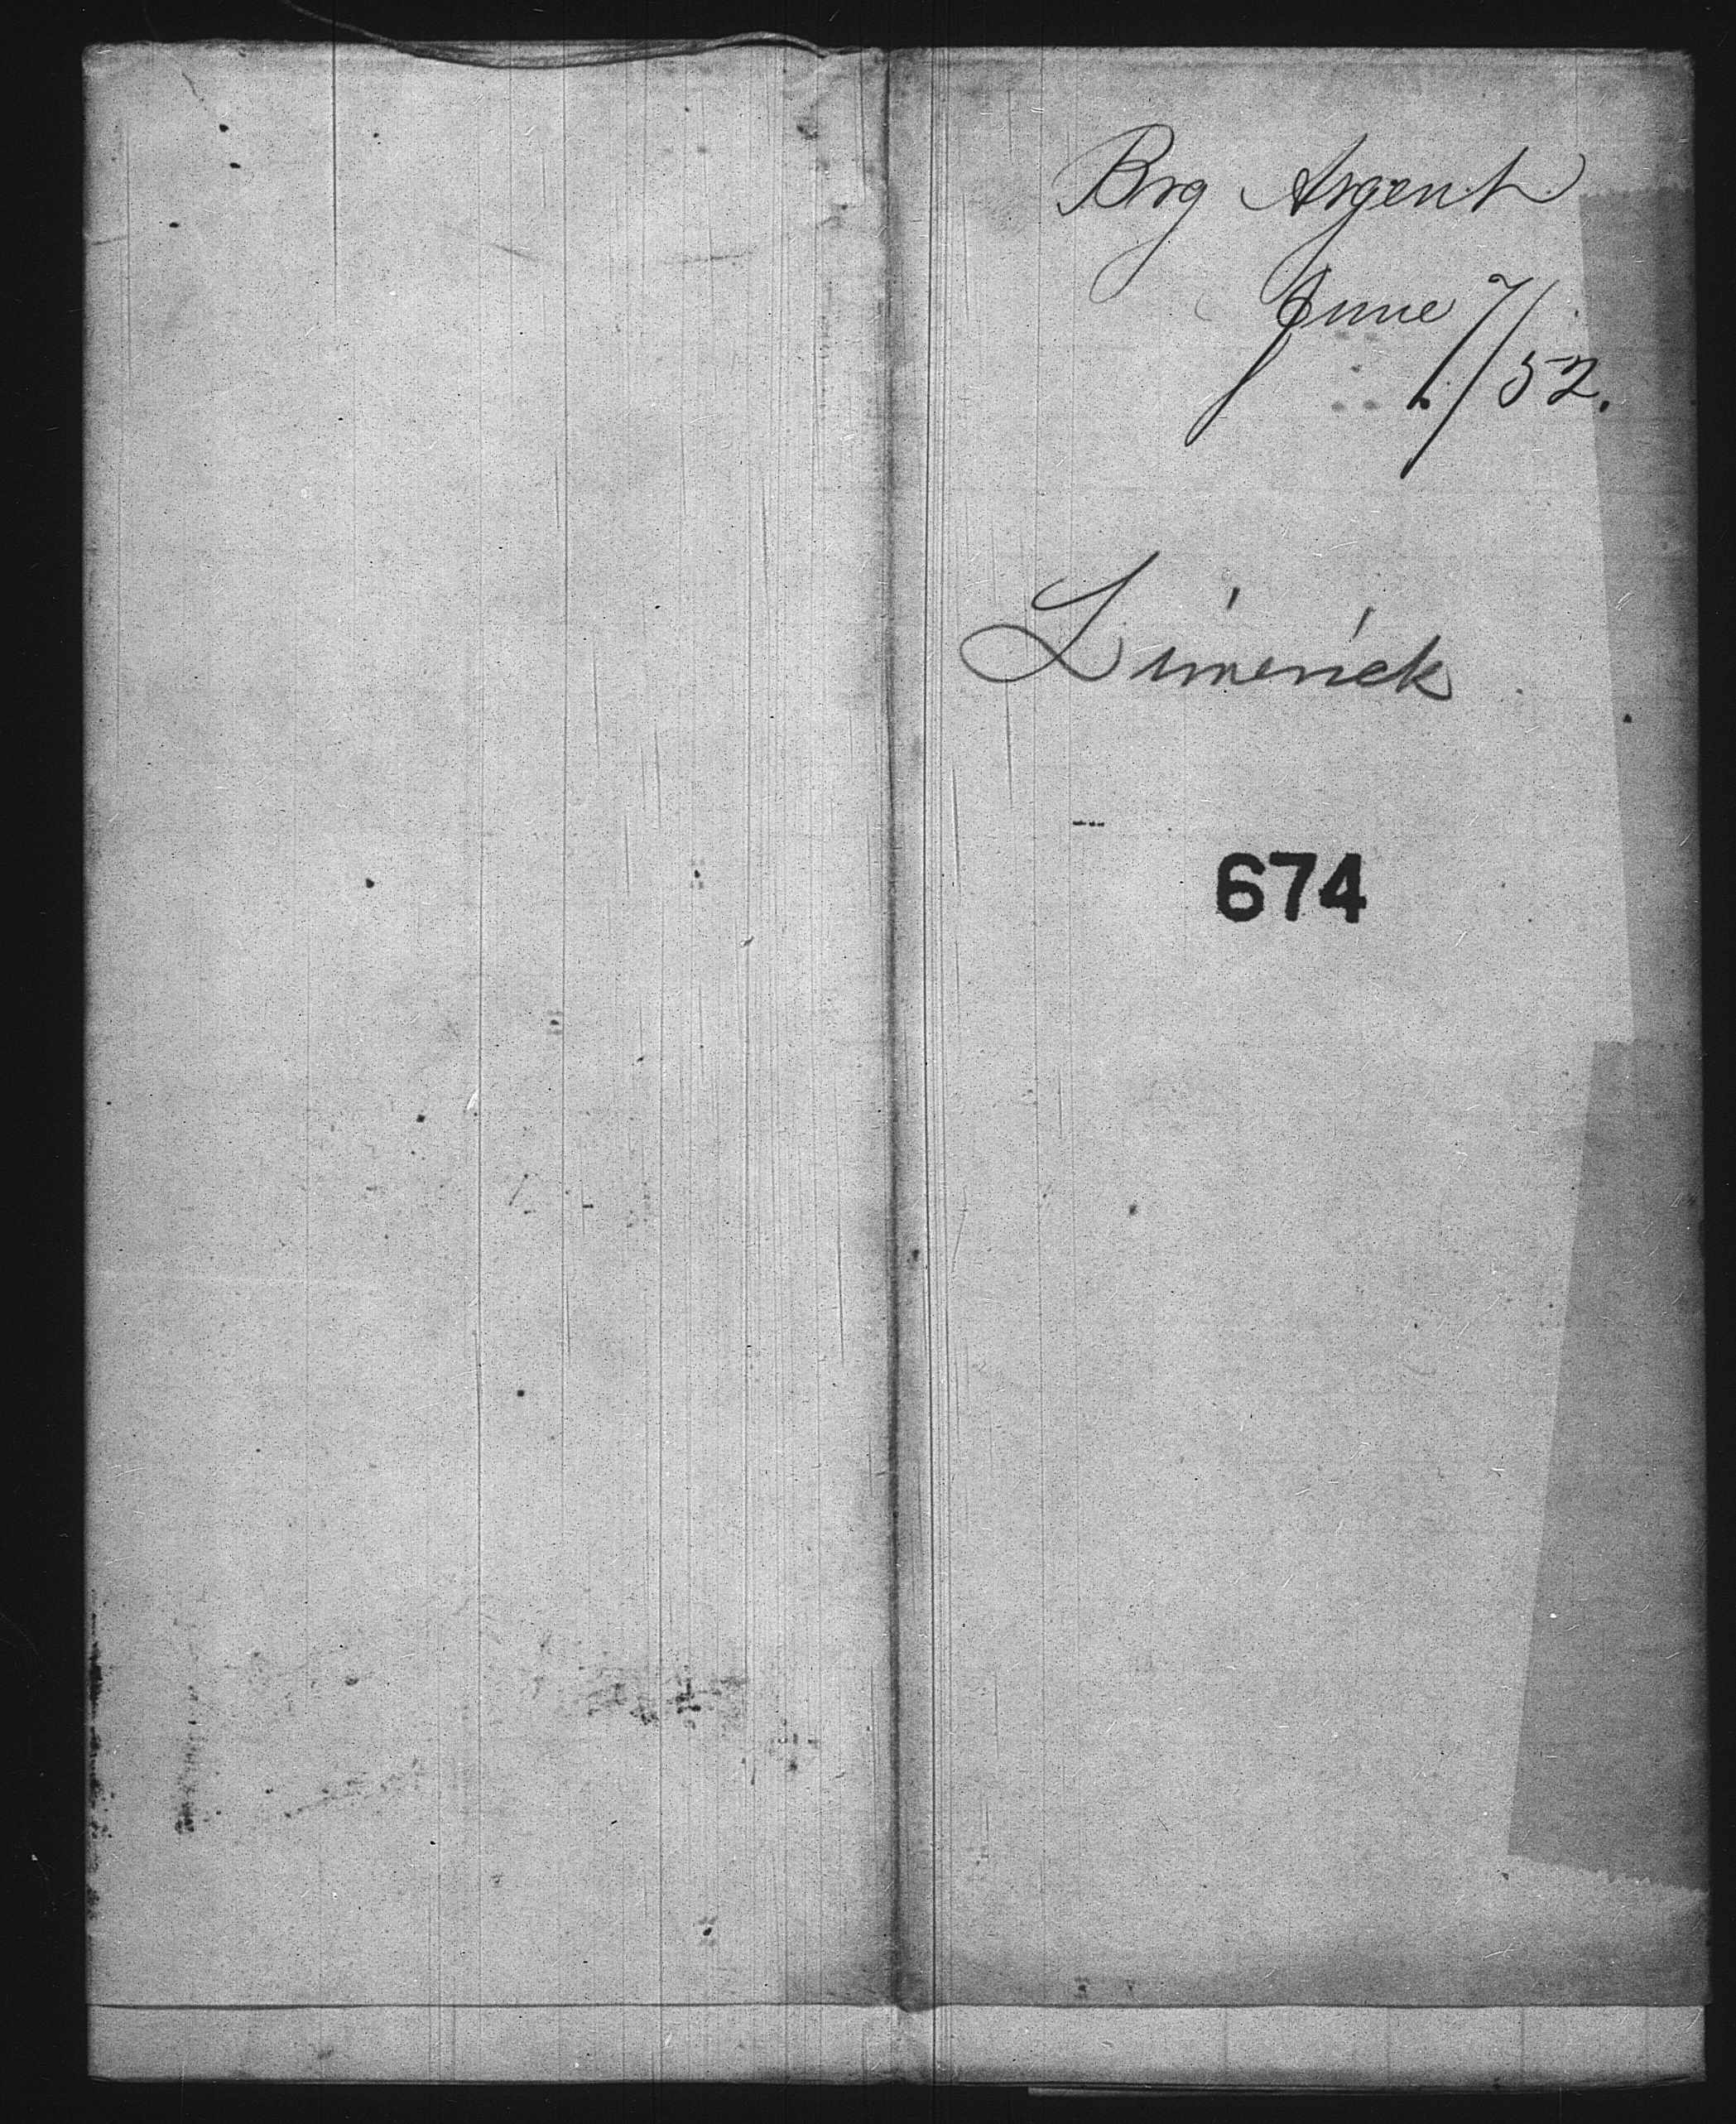 Brg Argent
June 7/52.
Limerick
674